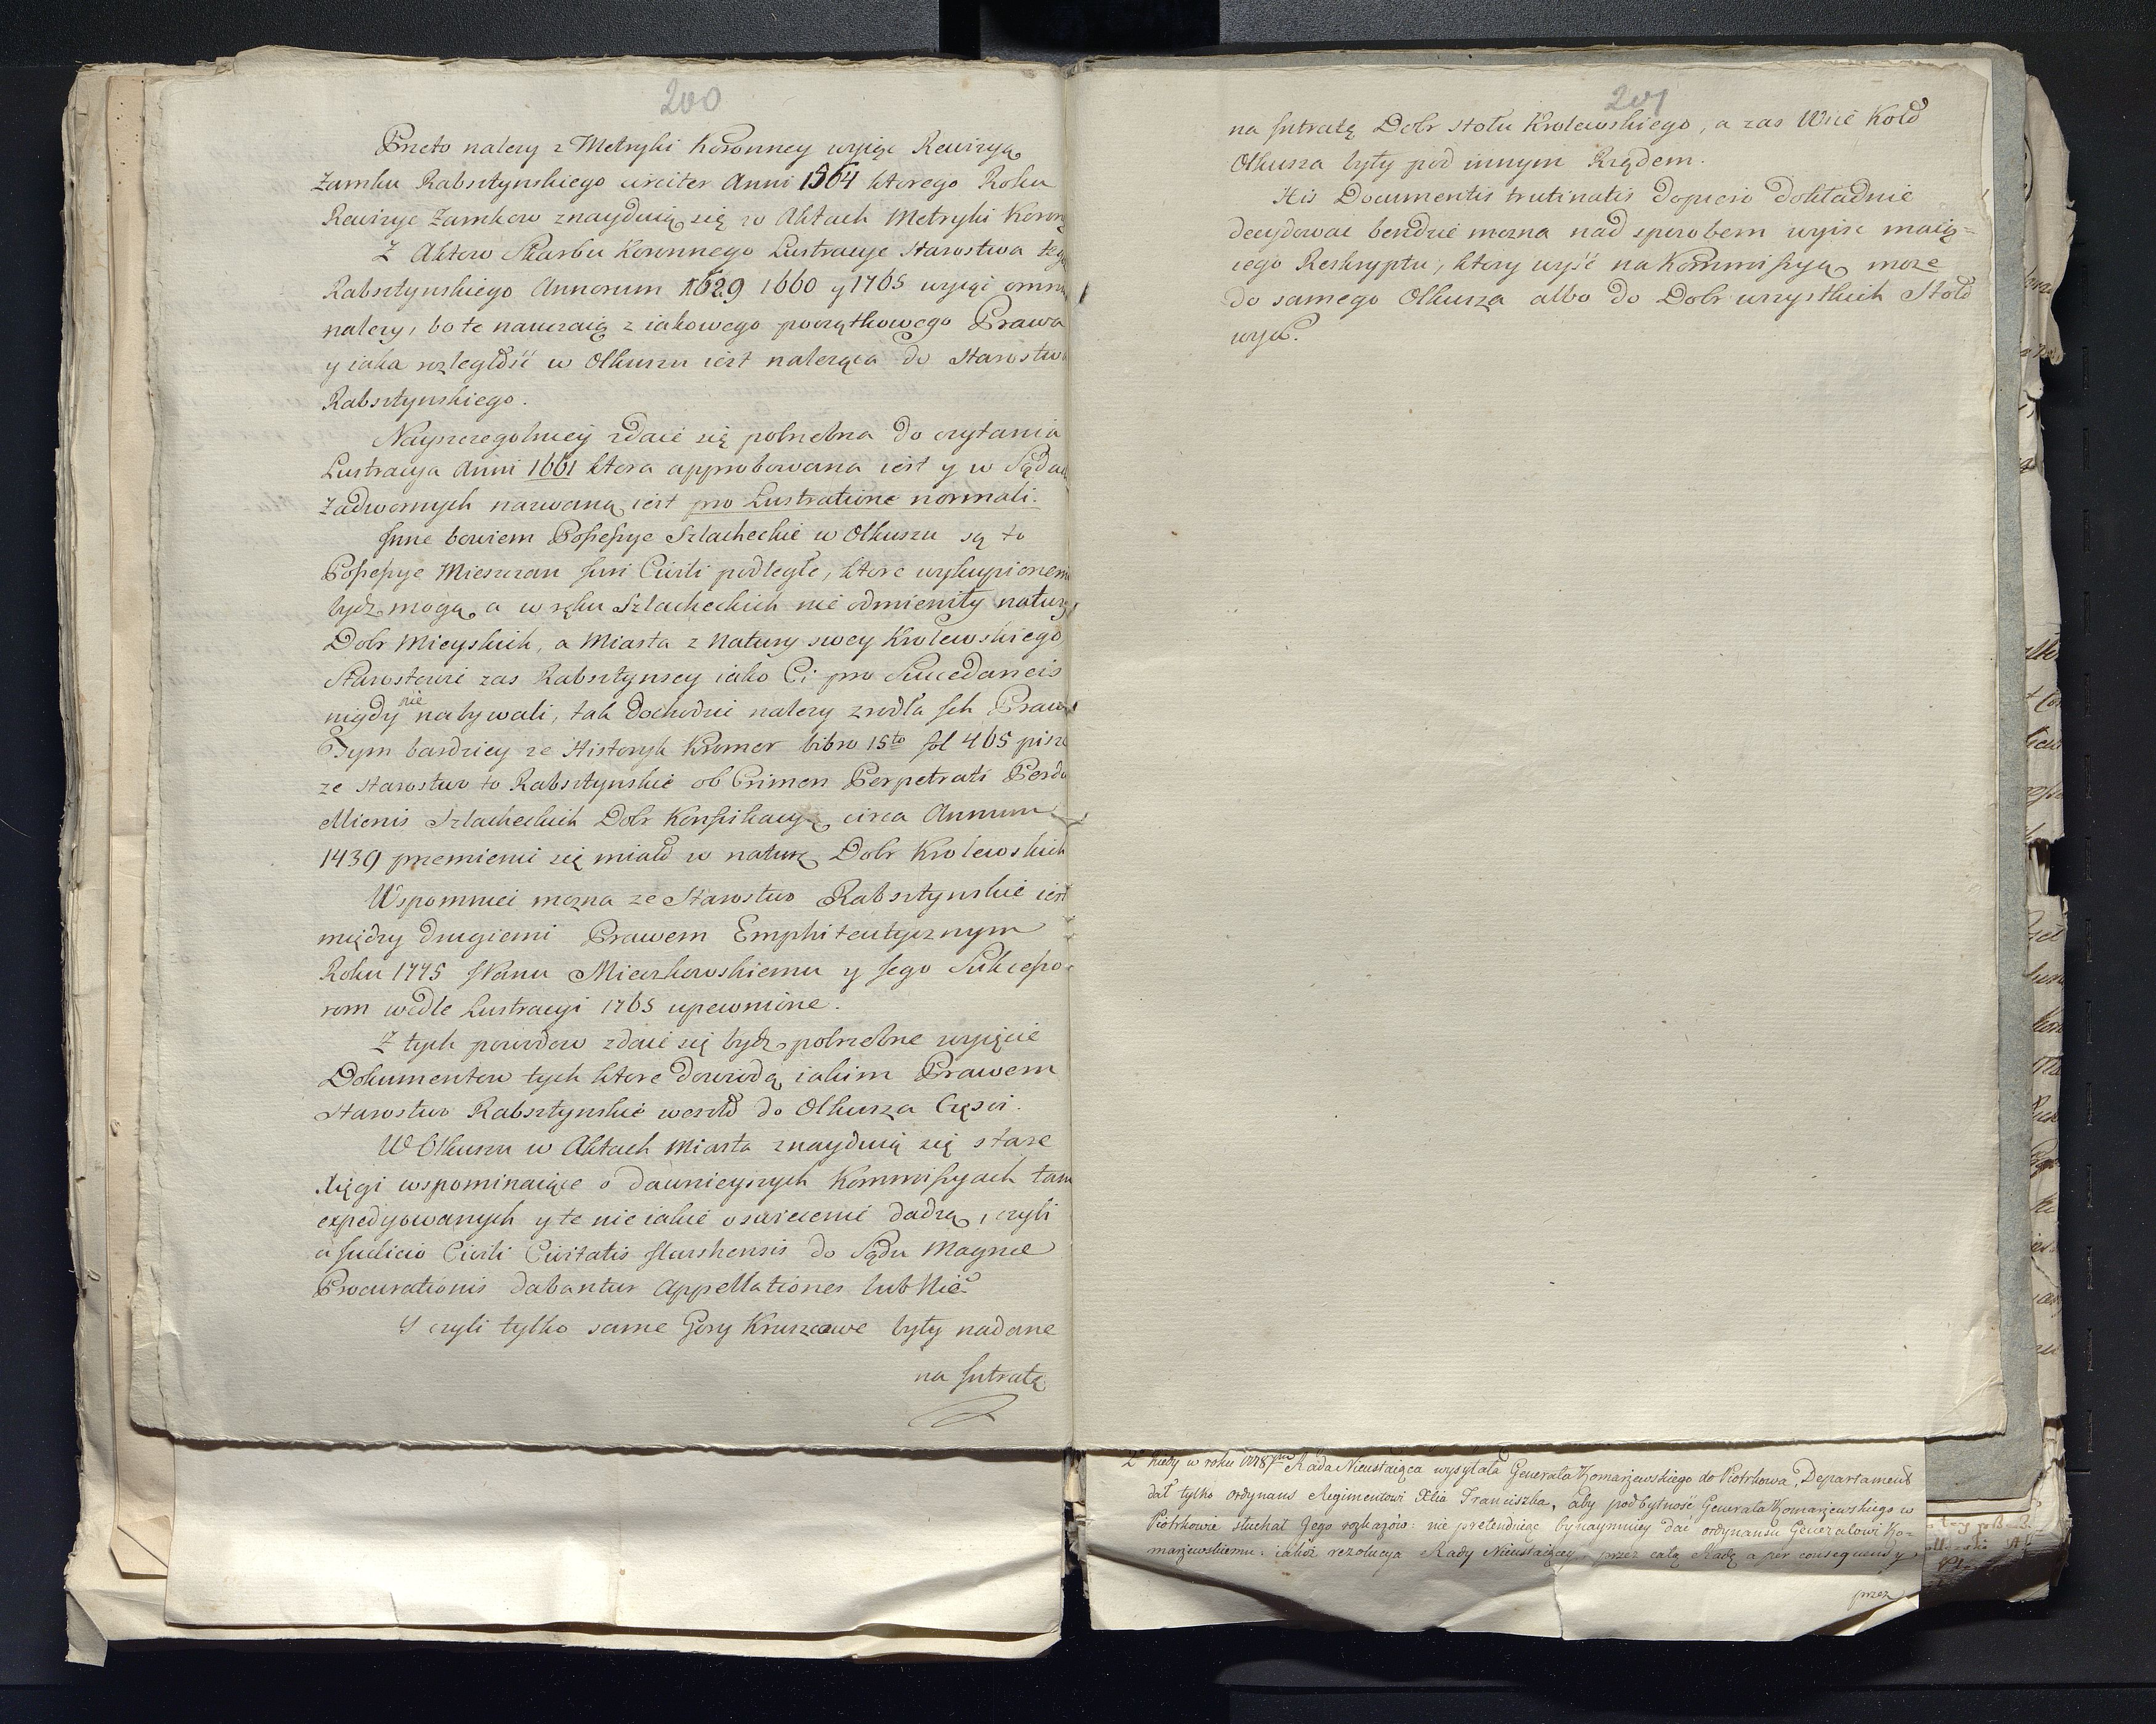 200
Przeto nalezy z Metryki Koronney wyiąc Rewizyą
Zamku Rabsztynskiego circiter Anni 1564 ktorego Roku
Rewizye Zamkow znayduią się w Aktach Metryki Koron
Z Aktow Skarbu Koronnego Lustracye Starostwa teg
Rabsztynskiego Annorum 1629 1660 y 1765 wyiąć omn
nalezy, bo te nauczaią z iakowego początkowego Prawa
y iaka rozległość w Olkuszu iest naleząca do Starostw
Rabsztynskiego.
Nayszczegolniey zdaie się potrzebna do czytania
Lustracya Anni 1661 ktora approbowana iest y w Sądac
Zadwornych nazwaną iest pro Lustratione normali.
Inne bowiem Possessye Szlacheckie w Olkuszu są to
Possessye Mieszczan Juri Civili podległe, ktore wykupionemi
bydz mogą a w ręku Szlacheckich nie odmieniły natury
Dobr Mieyskich, a Miasta z Natury swey Krolewskiego
Starostowie zas Rabsztynscy iako Ci pro Succedaneis
nigdy nie nabywali, tak dochodzić nalezy zrodła Ich Praw
Tym bardziey ze Historyk Kromer libro 15to fol 465 pisze
ze Starostwo to Rabsztynskie ob Crimen Perpetrati Perdu
ellionis Szlacheckich Dobr Konfiskacyą circa Annum
1439 przemienić się miało w naturę Dobr Krolewskich
Wspomnieć mozna ze Starostwo Rabsztynskie iest
między drugiemi Prawem Emphiteutycznym
Roku 1775 JPanu Mieszkowskiemu y Jego Sukcesso-
rom wedle Lustracyi 1765 upewnione.
Z tych powodow zdaie się bydz potrzebne wyięcie
Dokumentow tych ktore dowiodą iakim Prawem
Starostwo Rabsztynskie weszło do Olkusza Części.
W Olkuszu w Aktach Miasta znayduią się stare
Xięgi wspominaiące o dawnieyszych Kommissyach tam
expedyowanych y te nieiakie oswiecenie dadzą, czyli
a Judicio Civili Civitatis Ilcushensis do Sądu Magnæ
Procurationis dabantur Appellationes lub Nie?
I czyli tylko same Gory Kruszcowe były nadane
na Intratę
201
na Intratę Dobr stołu Krolewskiego, a zas Wsie Koło
Olkusza były pod innym Rządem.
His Documentis trutinatis dopiero dokładnie
decydować bendzie mozna nad sposobem wyisc maią=
cego Reskryptu, ktory wyść na Kommissyą moze
do samego Olkusza albo do Dobr wszystkich Stoło
wych.
2° Kiedy w roku 1778ym Rada Nieustaiąca wysyłała Generała Komarzewskiego do Piotrkowa, Departament
dał tylko ordynans Regimentowi Xcia Franciszka, aby pod bytność Generała Komarzewskiego w
Piotrkowie słuchał Jego rozkazów: nie pretenduiąc bynaymniey dać ordynansu Generałowi Ko-
marzewskiemu: iakoż rezolucya Rady Nieustaiącey, przez całą Radę a per consequens y
przez